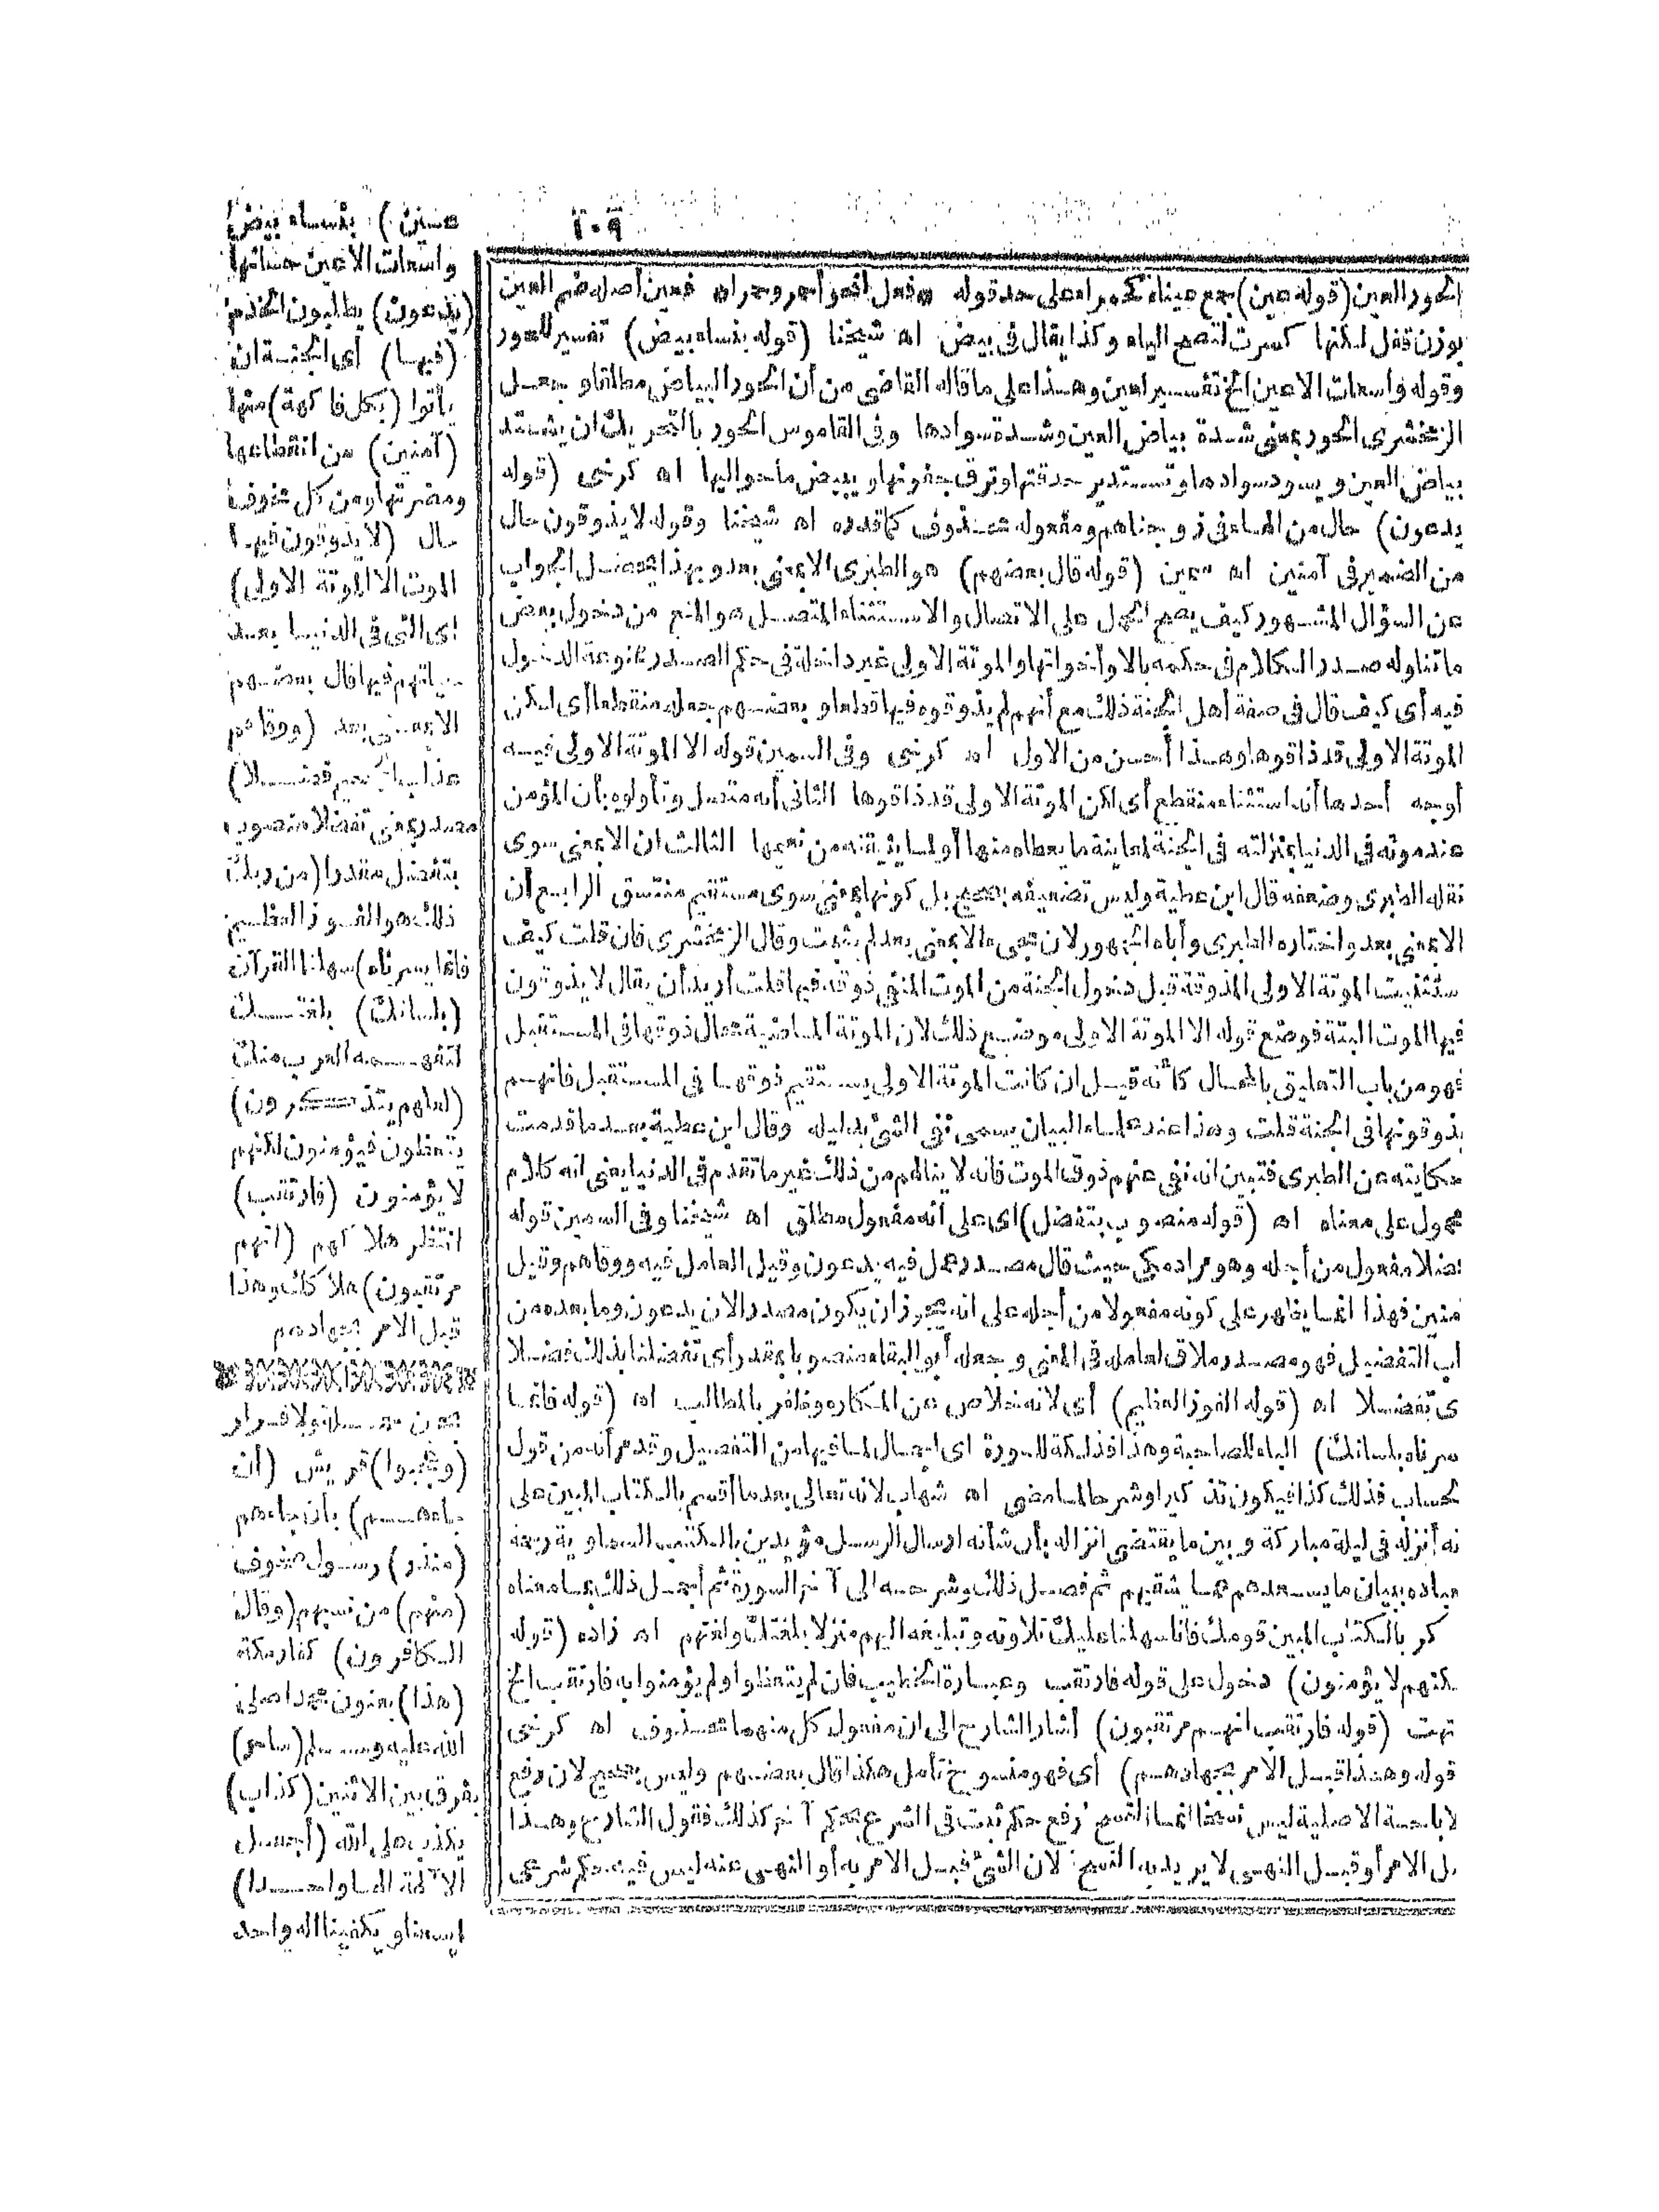 ١٠٩
الحور العين (قوله عين) جمع عيناء كحمراء على حد قوله * فعل لنحو أحمر وحمرا * فعين أصله ضم العين
بوزن قفل لكنها كسرت لتصح الياء وكذا يقال فى بيض اه شيخنا (قوله بنساء بيض) تفسير للحور
وقوله واسعات الاعين الخ تفسير لعين وهذا على ما قاله القاضى من أن الحور البياض مطلقا وجعل
الزمخشرى الحور بمعنى شدة بياض العين وشدة سوادها وفى القاموس الحور بالتحريك ان يشتد
بياض العين ويسود سوادها وتستدير حدقتها وترق جفونها ويبيض ما حواليها اه كرخى (قوله
يدعون) حال من الهاء فى زوجناهم ومفعوله محذوف كما قدره اه شيخنا وقوله لا يذوقون حال
من الضمير فى آمنين اه سمين (قوله قال بعضهم) هو الطبرى الا بمعنى بعد وبهذا يحصل الجواب
عن السؤال المشهور كيف يصح الحمل على الاتصال والاستثناء المتصل هو المنع من دخول بعض
ما تناوله صدر الكلام فى حكمه بالا وأخواتها والموتة الاولى غير داخلة فى حكم الصدر ممنوعة الدخول
فيه أى كيف قال فى صفة أهل الجنة ذلك مع أنهم لم يذوقوه فيها قط او بعضهم جعله منقطعا أى لكن
الموتة الاولى قد ذاقوها وهذا أحسن من الاول اه كرخى وفى السمين قوله الا الموتة الاولى فيه
أوجه أحدها أنه استثناء منقطع أى لكن الموتة الاولى قد ذاقوها الثانى أنه متصل وتأولوه بأن المؤمن
عند موته فى الدنيا بمنزلته فى الجنة لمعاينة ما يعطاه منها أو لما يتيقنه من نعيمها الثالث ان الا بمعنى سوى
نقله الطبرى وضعفه قال ابن عطية وليس تضعيفه بصحيح بل كونها بمعنى سوى مستقيم متسق الرابع أن
الا بمعنى بعد واختاره الطبرى وأباه الجمهور لان مجىء الا بمعنى بعد لم يثبت وقال الزمخشرى فان قلت كيف
ستثنيت الموتة الاولى المذوقة قبل دخول الجنة من الموت المنفى ذوقه فيها قلت أريد أن يقال لا يذوقون
فيها الموت البتة فوضع قوله الا الموتة الاولى موضع ذلك لان الموتة الماضية محال ذوقها فى المستقبل
فهو من باب التعليق بالمحال كأنه قيل ان كانت الموتة الاولى يستقيم ذوقها فى المستقبل فانهم
يذوقونها فى الجنة قلت وهذا عند علماء البيان يسمى نفى الشئ بدليله وقال ابن عطية بعد ما قدمت
حكايته عن الطبرى فتبين انه نفى عنهم ذوق الموت فانه لا ينالهم من ذلك غير ما تقدم فى الدنيا يعنى انه كلام
محمول على معناه اه (قوله منصوب بتفضل) اى على أنه مفعول مطلق اه شيخنا وفى السمين قوله
فضلا مفعول من أجله وهو مراد مكى حيث قال مصدر عمل فيه يدعون وقيل العامل فيه ووقاهم وقيل
آمنين فهذا انما يظهر على كونه مفعولا من أجله على انه يجوز ان يكون مصدرا لان يدعون وما بعده من
باب التفضيل فهو مصدر ملاق لعامله فى المعنى وجعله أبو البقاء منصوبا بمقدر أى تفضلنا بذلك فضلا
أى تفضلا اه (قوله الفوز العظيم) أى لانه خلاص عن المكاره وظفر بالمطالب اه (قوله فانما
يسرناه بلسانك) الباء للمصاحبة وهذا فذلكة للسورة اى اجمال لما فيها من التفصيل وقد مر أنه من قول
الحساب فذلك كذا فيكون تذكيرا وشرحا لما مضى اه شهاب لانه تعالى بعد ما أقسم بالكتاب المبين على
نه أنزله فى ليلة مباركة وبين ما يقتضى انزاله بأن شأنه ارسال الرسل مؤيدين بالكتب السماوية رحمة
عباده ببيان ما يسعدهم مما يشقيهم ثم فصل ذلك وشرحه الى آخر السورة ثم أجمل ذلك بما معناه
كر بالكتاب المبين قومك فانا سهلنا عليك تلاوته وتبليغه اليهم منزلا بلغتك ولغتهم اه زاده (قوله
لكنهم لا يؤمنون) دخول على قوله فارتقب وعبارة الخطيب فان لم يتعظوا ولم يؤمنوا به فارتقب الخ
نهت (قوله فارتقب انهم مرتقبون) أشار الشارح الى ان مفعول كل منهما محذوف اه كرخى
قوله وهذا قبل الامر بجهادهم) أى فهو منسوخ تأمل هكذا قال بعضهم وليس بصحيح لان رفع
لاباحة الاصلية ليس نسخا انما النسخ رفع حكم ثبت فى الشرع بحكم آخر كذلك فقول الشارح وهذا
بل الامر أو قبل النهى لا يريد به النسخ لان الشئ قبل الامر به أو النهى عنه ليس فيه حكم شرعى
عين) بنساء بيض
واسعات الاعين حسانها
(يدعون) يطلبون الخدم
(فيها) أى الجنة ان
يأتوا (بكل فاكهة) منها
(آمنين) من انقطاعها
ومضرتها ومن كل مخوف
حال (لا يذوقون فيها
الموت الا الموتة الاولى)
اى التى فى الدنيا بعد
حياتهم فيها قال بعضهم
الا بمعنى بعد (ووقاهم
عذاب الجحيم فضلا)
مصدر بمعنى تفضلا منصوب
بتفضل مقدرا (من ربك
ذلك هو الفوز العظيم
فانما يسرناه) سهلنا القرآن
(بلسانك) بلغتك
لتفهمه العرب منك
(لعلهم يتذكرون)
يتعظون فيؤمنون لكنهم
لا يؤمنون (فارتقب)
انتظر هلاكهم (انهم
مرتقبون) هلاكك وهذا
قبل الامر بجهادهم
ولا فرار
(وعجبوا) قريش (أن
جاءهم) بأن جاءهم
(منذر) رسول مخوف
(منهم) من نسبهم (وقال
الكافرون) كفار مكة
(هذا) يعنون محمدا صلى
الله عليه وسلم (ساحر)
يفرق بين الاثنين (كذاب)
يكذب على الله (أجعل
الآلهة الها واحدا)
ايسعنا ويكفينا اله واحد